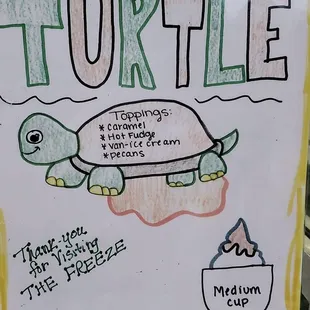 TURTLE
Toppings:
* Caramel
* Hot Fudge
* Van-ice cream
* pecans
Thank-you
for visiting
THE FREEZE
Medium
cup